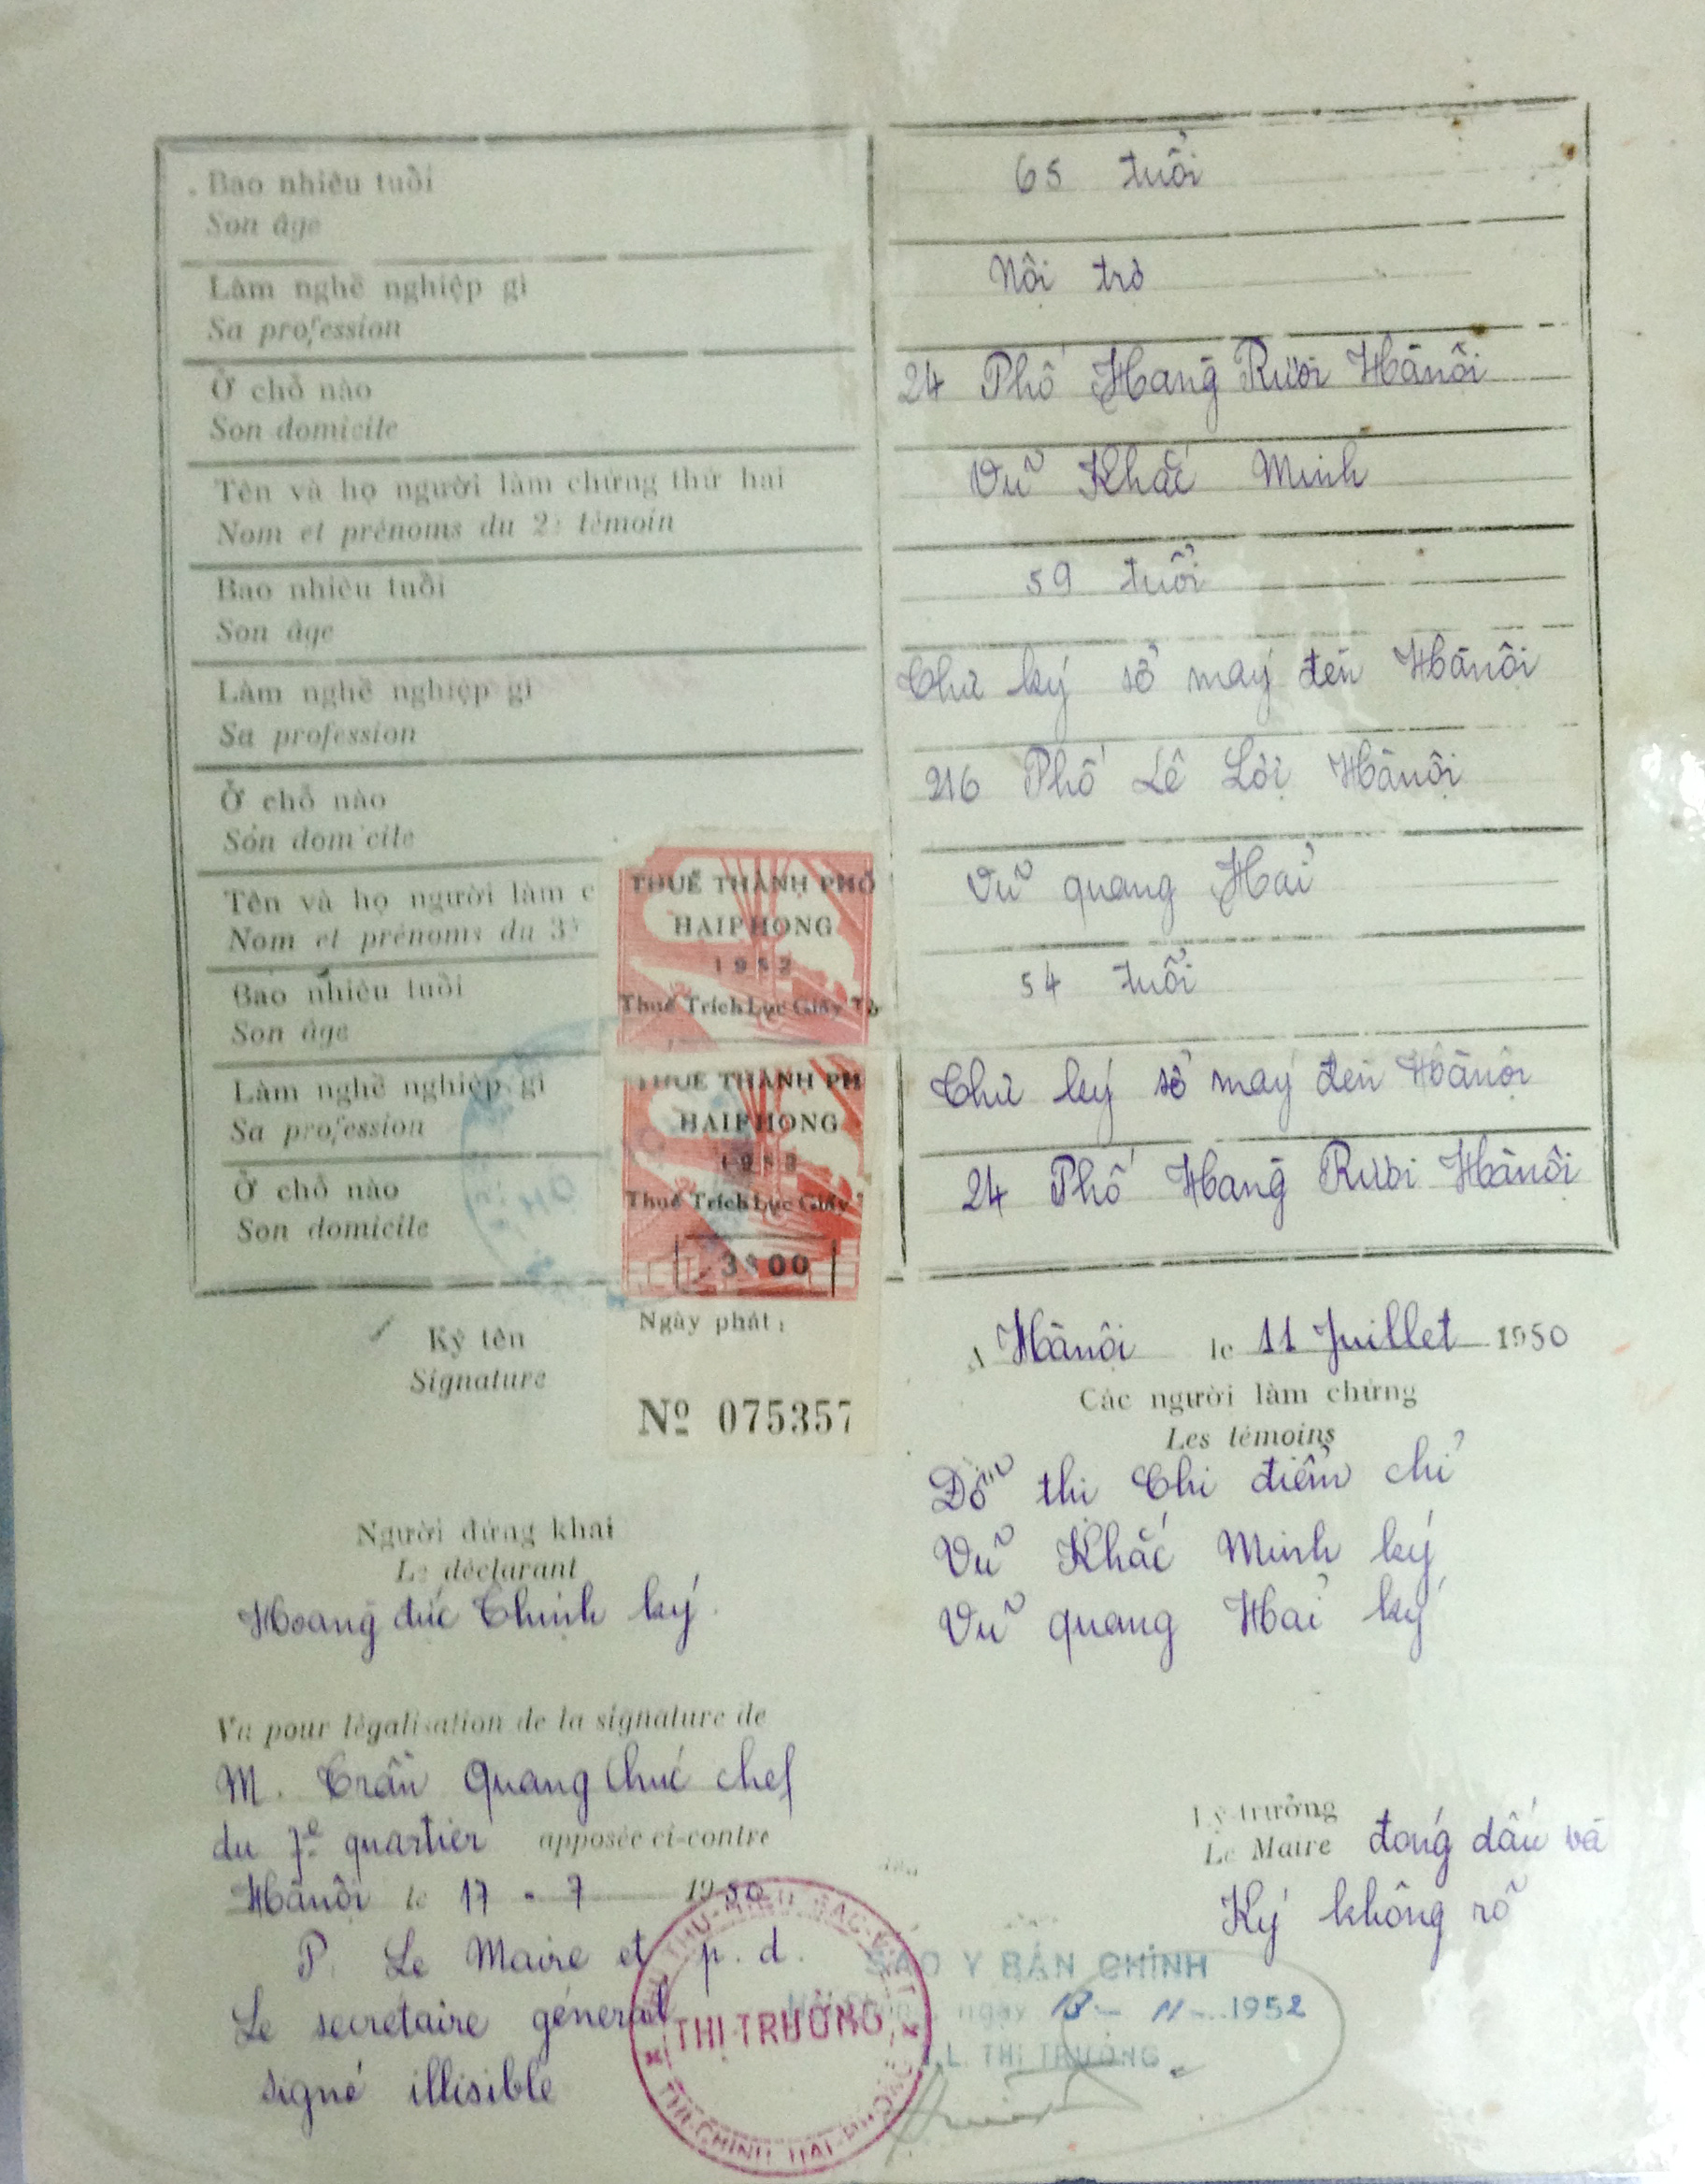 Bao nhiêu tuổi
Son âge
65 tuổi
Làm nghề nghiệp gì
Sa profession
Nội trợ
Ở chỗ nào
Son domicile
24 Phố Hàng Rươi Hànội
Tên và họ người làm chứng thứ hai
Nom et prénoms du 2è témoin
Vũ Khắc Minh
Bao nhiêu tuổi
Son âge
59 tuổi
Làm nghề nghiệp gì
Sa profession
Thư ký sở máy đèn Hànội
Ở chỗ nào
Son domicile
216 Phố Lê Lợi Hànội
Tên và họ người làm c
Nom et prénoms du 3è
Vũ quang Hải
Bao nhiêu tuổi
Son âge
54 tuổi
Làm nghề nghiệp gì
Sa profession
Thư ký sở máy đèn Hànội
Ở chỗ nào
Son domicile
24 Phố Hàng Rươi Hànội
THUẾ THÀNH PHỐ
HAIPHONG
1952
Thuế Trích Lục Giấy Tờ
THUẾ THÀNH PH
HAIPHONG
1952
Thuế Trích Lục Giấy
3$00
Ngày phát:
Nº 075357
Ký tên
Signature
A Hànội le 11 Juillet 1950
Các người làm chứng
Les témoins
Đỗ thị Chi điểm chỉ
Vũ Khắc Minh ký
Vũ quang Hải ký
Người đứng khai
Le déclarant
Hoàng đức Thịnh ký.
Vu pour légalisation de la signature de
M. Trần Quang Chúc chef
du 7e quartier apposée ci-contre
Hànội le 17 - 7 1950
P. Le Maire et p.d.
Le secrétaire général
signé illisible
Lý-trưởng
Le Maire đóng dấu và
Ký không rõ
SAO Y BẢN CHÍNH
ngày 13 - 11 - 1952
T.L. THỊ TRƯỞNG
THỊ TRƯỞNG